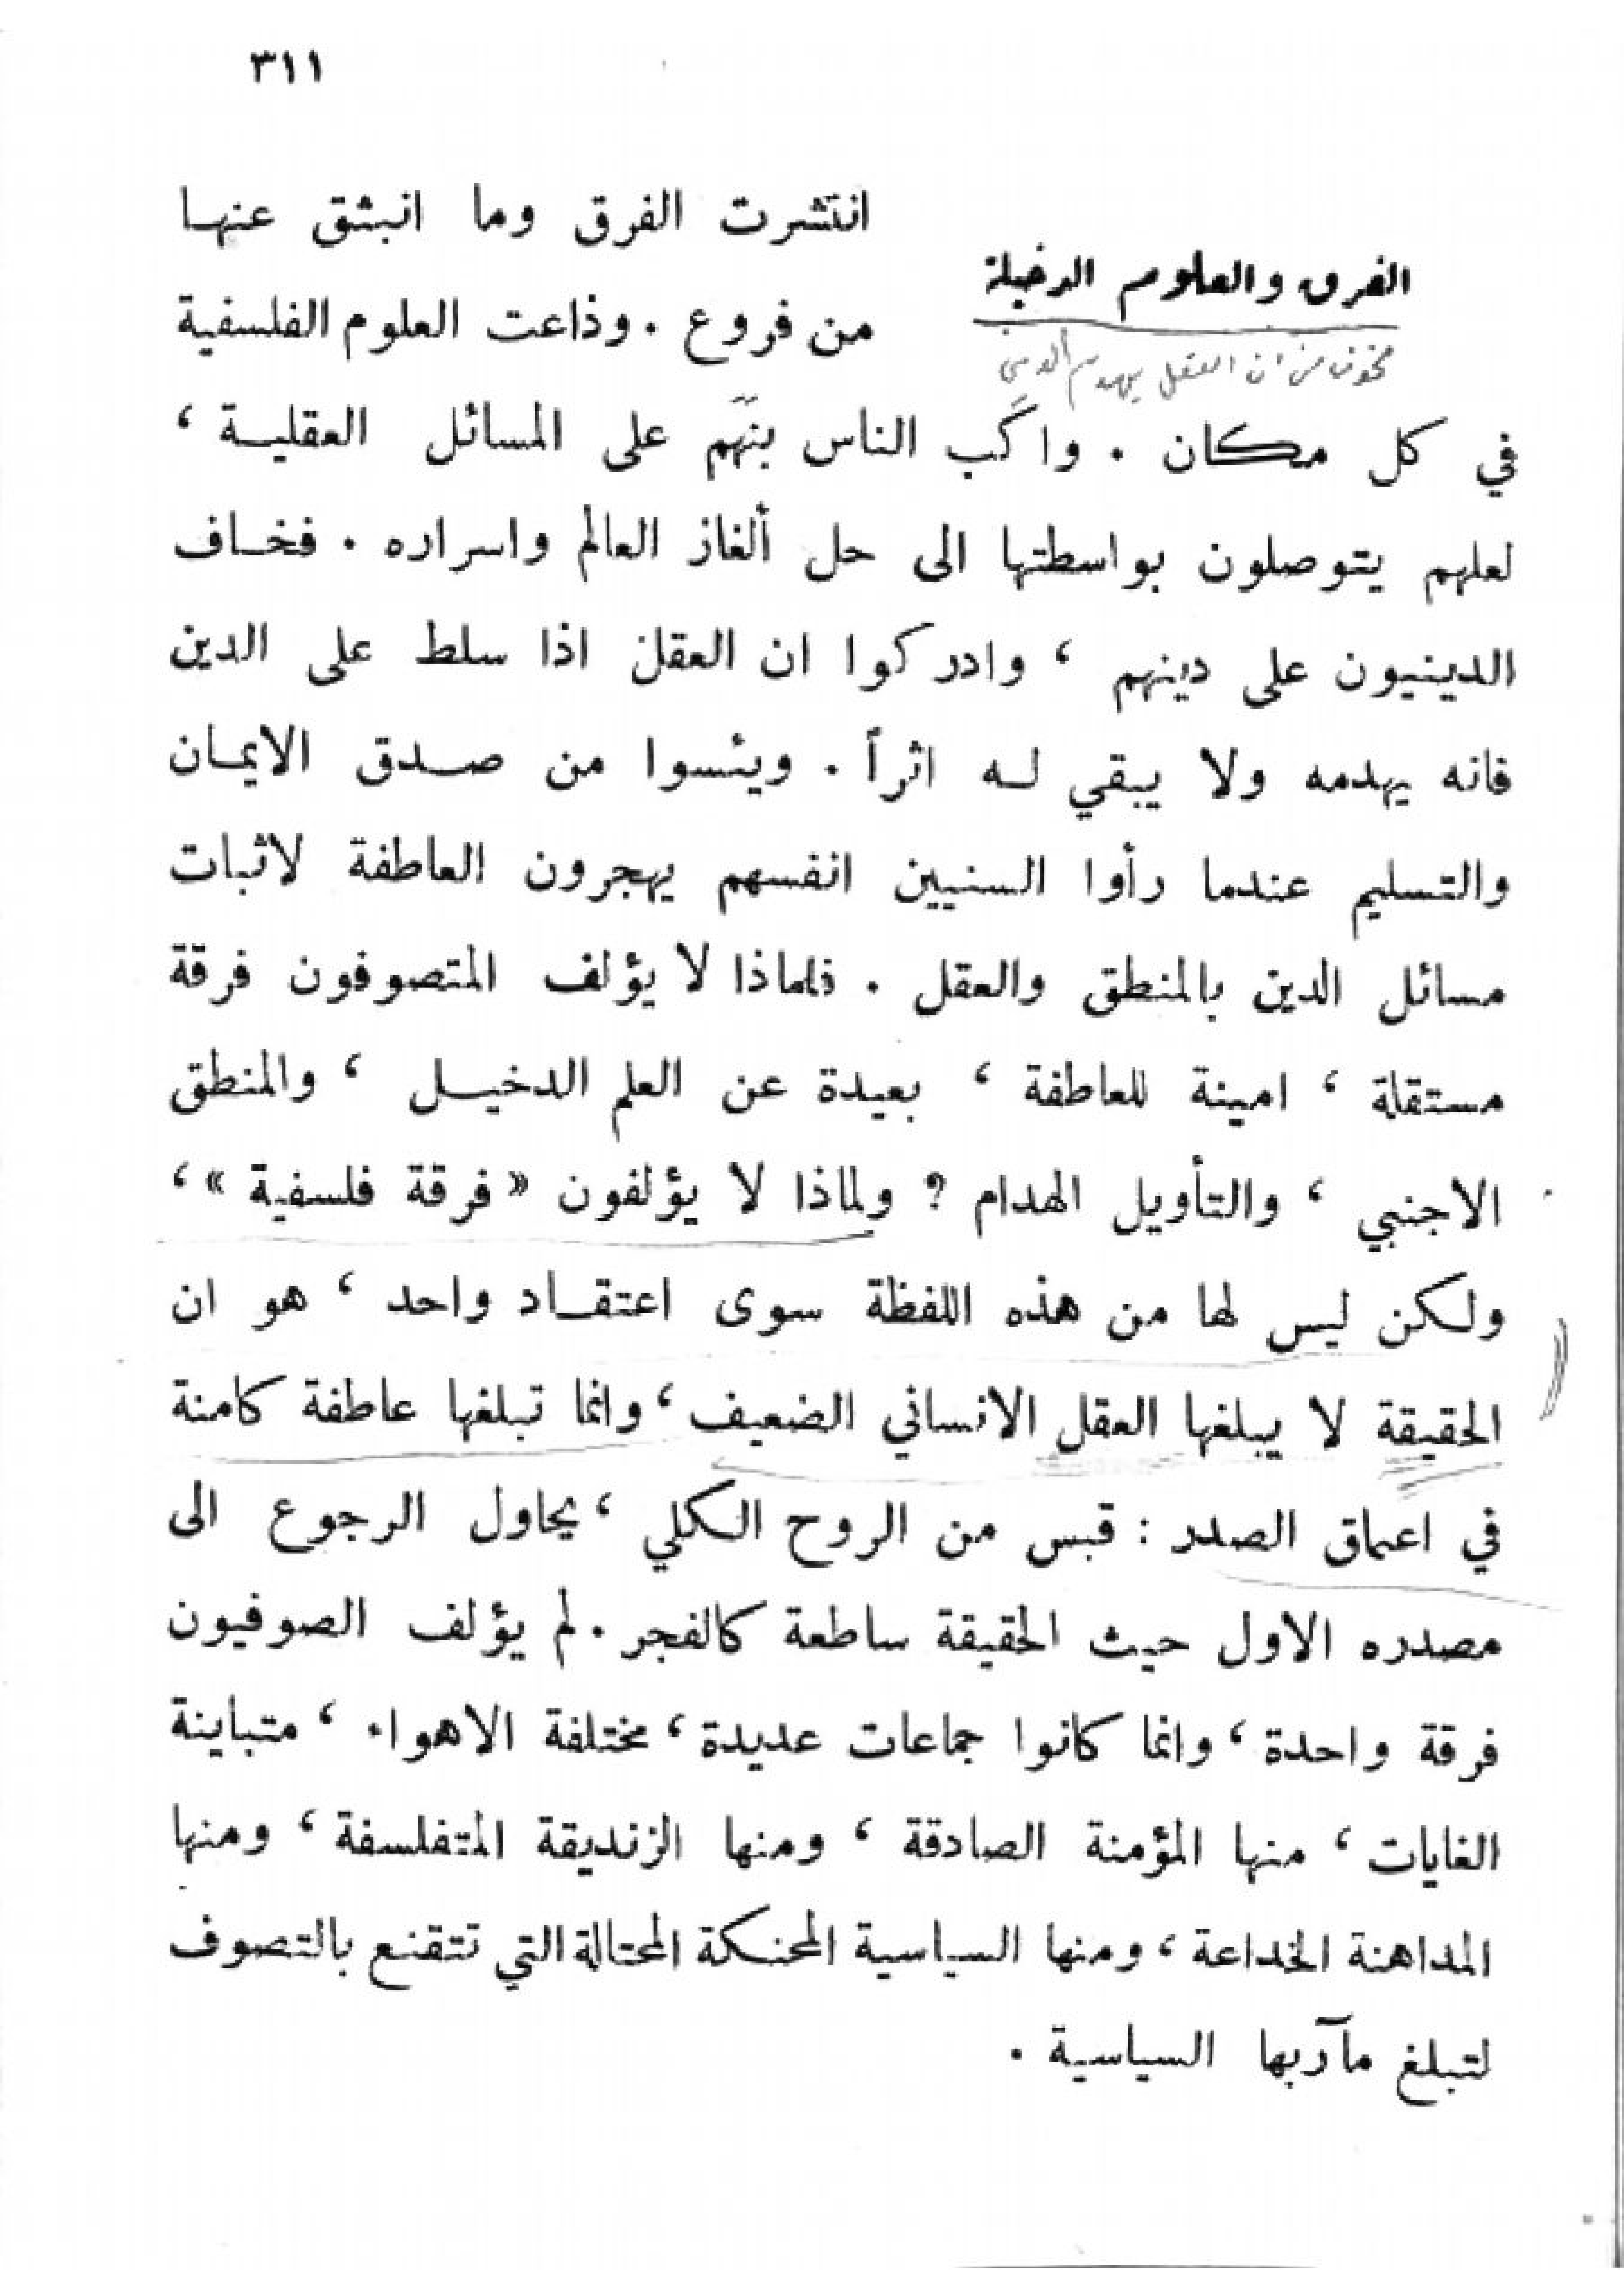 ٣١١
انتشرت الفرق وما انبثق عنها
الفرق والعلوم الدخيلة
من فروع . وذاعت العلوم الفلسفية
من ان العقل يهدم الدين
في كل مكان . واكب الناس بنَهَم على المسائل العقلية ،
لعلهم يتوصلون بواسطتها الى حل ألغاز العالم واسراره . فخاف
الدينيون على دينهم ، وادركوا ان العقل اذا سلط على الدين
فانه يهدمه ولا يبقي له اثراً . ويئسوا من صدق الايمان
والتسليم عندما رأوا السنيين انفسهم يهجرون العاطفة لاثبات
مسائل الدين بالمنطق والعقل . فلماذا لا يؤلف المتصوفون فرقة
مستقلة ، امينة للعاطفة ، بعيدة عن العلم الدخيل ، والمنطق
الاجنبي ، والتأويل الهدام ؟ ولماذا لا يؤلفون « فرقة فلسفية » ،
ولكن ليس لها من هذه اللفظة سوى اعتقاد واحد ، هو ان
الحقيقة لا يبلغها العقل الانساني الضعيف ، وانما تبلغها عاطفة كامنة
في اعماق الصدر : قبس من الروح الكلي ، يحاول الرجوع الى
مصدره الاول حيث الحقيقة ساطعة كالفجر . لم يؤلف الصوفيون
فرقة واحدة ، وانما كانوا جماعات عديدة ، مختلفة الاهواء ، متباينة
الغايات ، منها المؤمنة الصادقة ، ومنها الزنديقة المتفلسفة ، ومنها
المداهنة الخداعة ، ومنها السياسية المحنكة المحتالة التي تتقنع بالتصوف
لتبلغ مآربها السياسية .